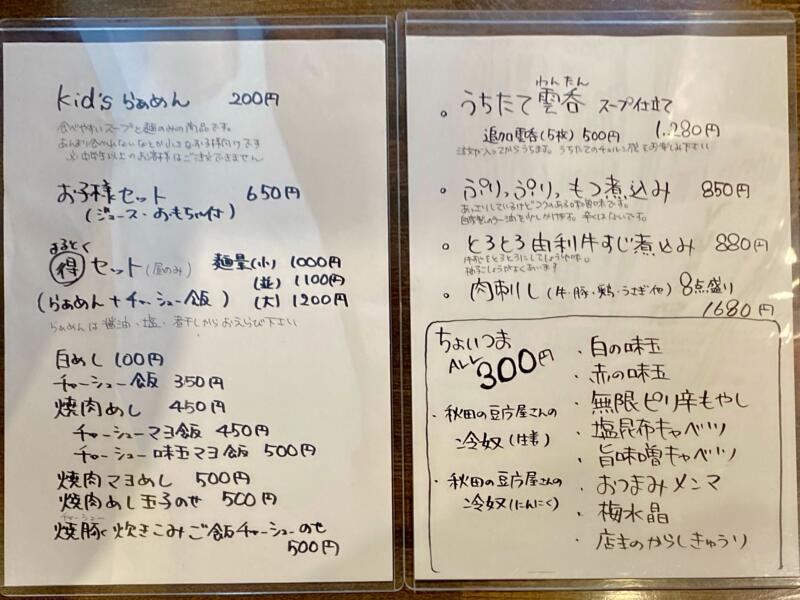 kid's らぁめん 200円
食べやすいスープと麺のみの商品です。
あんまり食べれないなとか小さなお子様向けです
※中学生以上のお客様はご注文できません
お子様セット 650円
(ジュース・おもちゃ付)
まるとく
得 セット(昼のみ) 麺量(小) 1000円
(並) 1100円
(らぁめん+チャーシュー飯) (大) 1200円
らぁめんは醤油・塩・煮干しからおえらび下さい
白めし 100円
チャーシュー飯 350円
焼肉めし 450円
チャーシューマヨ飯 450円
チャーシュー味玉マヨ飯 500円
焼肉マヨめし 500円
焼肉めし玉子のせ 500円
チャーシュー
焼豚炊きこみご飯チャーシューのせ
500円
わんたん
・うちたて雲呑 スープ仕立て
追加雲呑(5枚) 500円 1,280円
注文が入ってからうちます。うちたてのチュルン感をお楽しみ下さい
・ぷりっぷりっもつ煮込み 850円
あっさりしているけどコクのある味噌味です。
自家製のラー油を少しかけます。辛くはないです。
・とろとろ由利牛すじ煮込み 880円
牛すじをとろとろにしてしょうゆ味。
柚子こしょうがよくあいます
・肉刺し(牛・豚・鶏・うさぎ他) 8点盛り
1680円
ちょいつま
ALL 300円
・白の味玉
・赤の味玉
・無限ピリ辛もやし
・塩昆布キャベツ
・旨味噌キャベツ
・おつまみメンマ
・梅水晶
・店主のからしきゅうり
・秋田の豆腐屋さんの
冷奴(生姜)
・秋田の豆腐屋さんの
冷奴(にんにく)